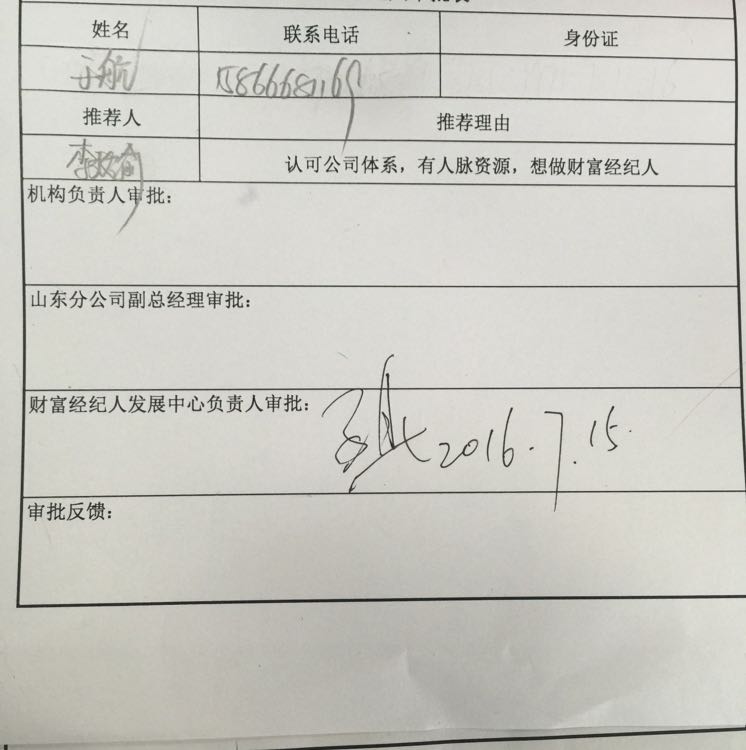 姓名 联系电话 身份证
于航 15866681169
推荐人 推荐理由
认可公司体系，有人脉资源，想做财富经纪人
机构负责人审批：
山东分公司副总经理审批：
财富经纪人发展中心负责人审批： 2016.7.15.
审批反馈：